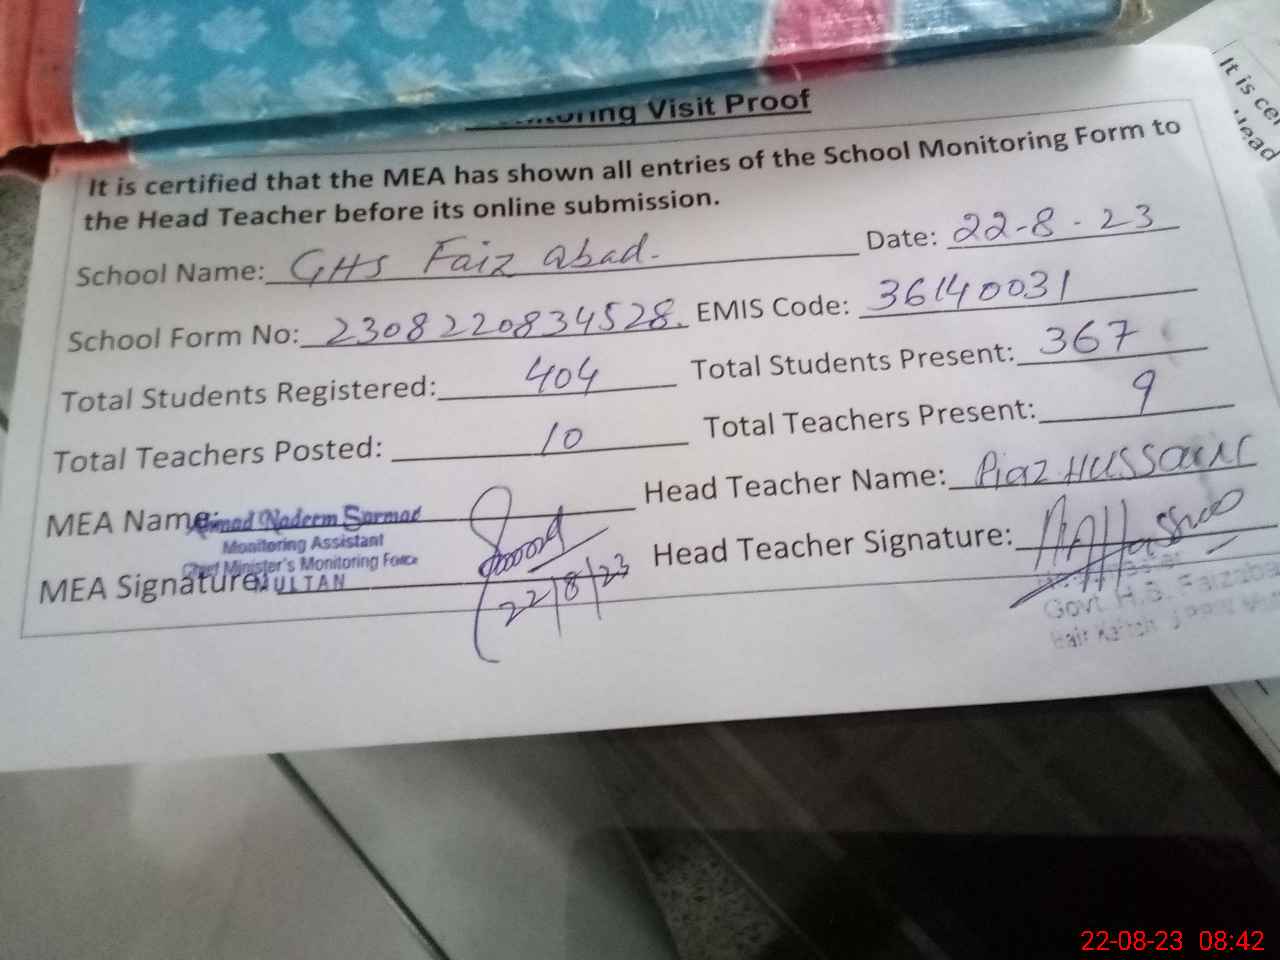 Visit Proof
It is certified that the MEA has shown all entries of the School Monitoring Form to
the Head Teacher before its online submission.
School Name: GHS Faiz abad. Date: 22-8-23
School Form No: 2308220834528. EMIS Code: 36140031
Total Students Registered: 404 Total Students Present: 367
Total Teachers Posted: 10 Total Teachers Present: 9
MEA Name: Nadeem Sarmad Head Teacher Name: Riaz HUSSAIN
Monitoring Assistant
Chief Minister's Monitoring Force
MULTAN
MEA Signature: 22/8/23 Head Teacher Signature:
Govt. H.S. Faizaba
It is cer
Head
22-08-23 08:42